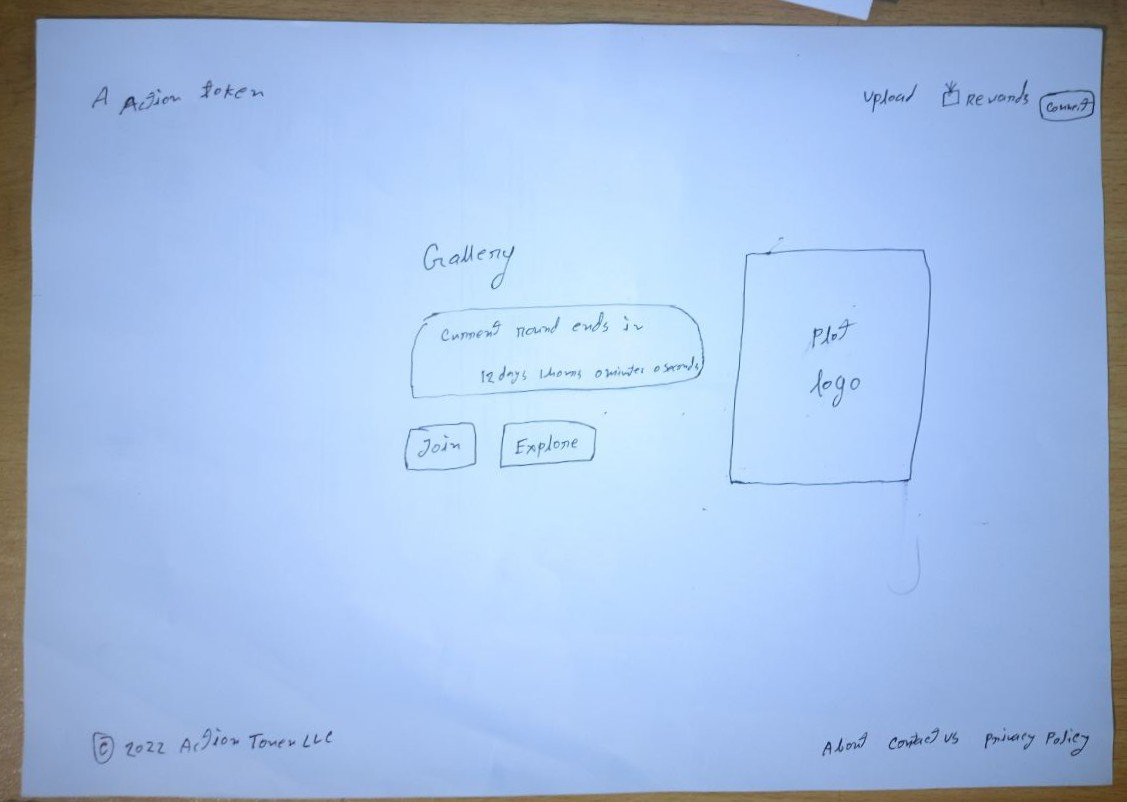 A Action token
Upload Rewards Connect
Gallery
Current round ends in
12 days 1 hours 0 minutes 0 seconds
Join
Explore
Plot
logo
© 2022 Action Token LLC
About Contact us Privacy Policy